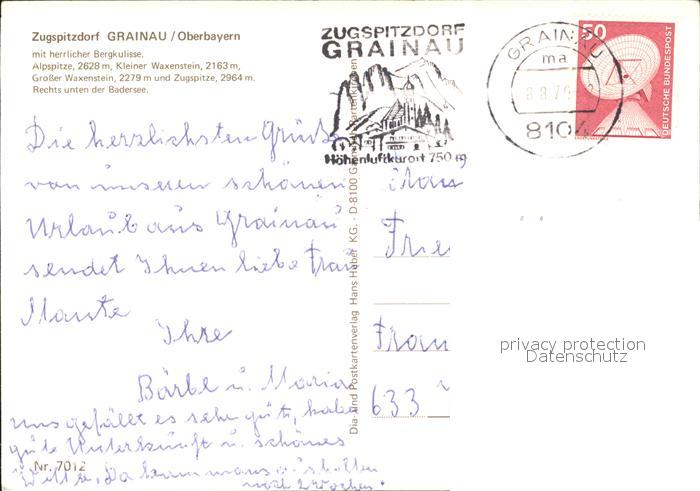 Zugspitzdorf GRAINAU / Oberbayern
mit herrlicher Bergkulisse.
Alpspitze, 2628 m, Kleiner Waxenstein, 2163 m,
Großer Waxenstein, 2279 m und Zugspitze, 2964 m.
Rechts unten der Badersee.
ZUGSPITZDORF
GRAINAU
Höhenluftkurort 750 m
GRAINAU
ma
8.8.79
8104
50
DEUTSCHE BUNDESPOST
Die herzlichsten Grüße
von unseren schönen
Urlaub aus Grainau
sendet Ihnen liebe Frau
Ihre
Bärbl u. Maria
uns gefällt es sehr gut, haben
gute Unterkunft u. schönes
Da kann mans aushalten
noch 2 Wochen.
Frie
Frau
633
Dia- und Postkartenverlag Hans Huber KG. - D-8100
Nr. 7012
privacy protection
Datenschutz